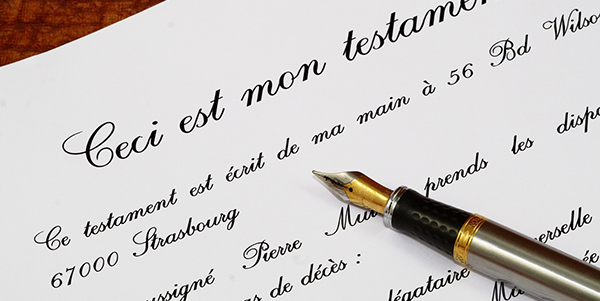 Ceci est mon testamen
Ce testament est écrit de ma main à 56 Bd Wilso
67000 Strasbourg
ussigné Pierre Mu prends les dispo
as de décès :
légataire verselle